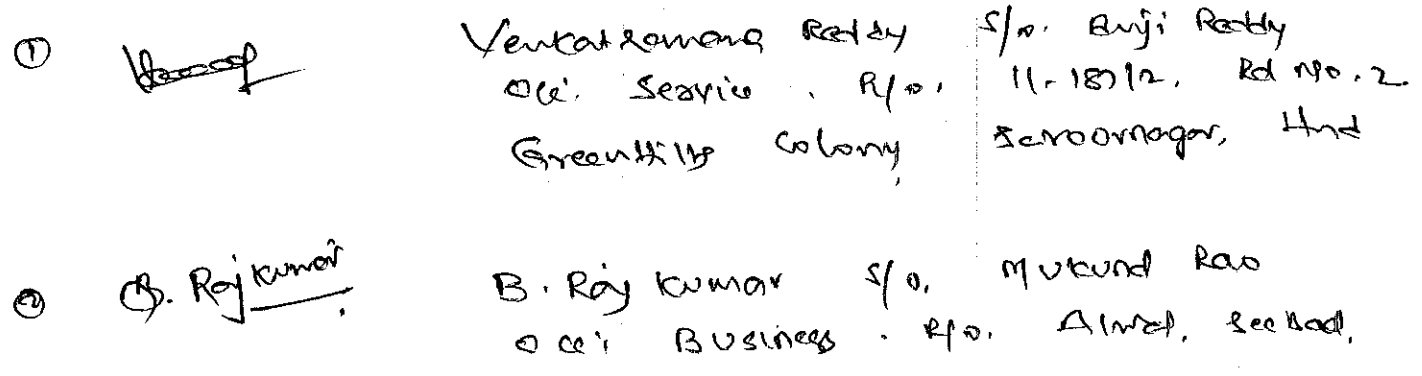 ① Venkatramana Reddy S/o. Anji Reddy
Occ: Service. R/o. 11-187/2, Rd No. 2.
GreenHills Colony, Saroornagar, Hyd
② B. Raj Kumar B. Raj Kumar S/o. Mukund Rao
Occ: Business. R/o. Alwal, Sec'bad.